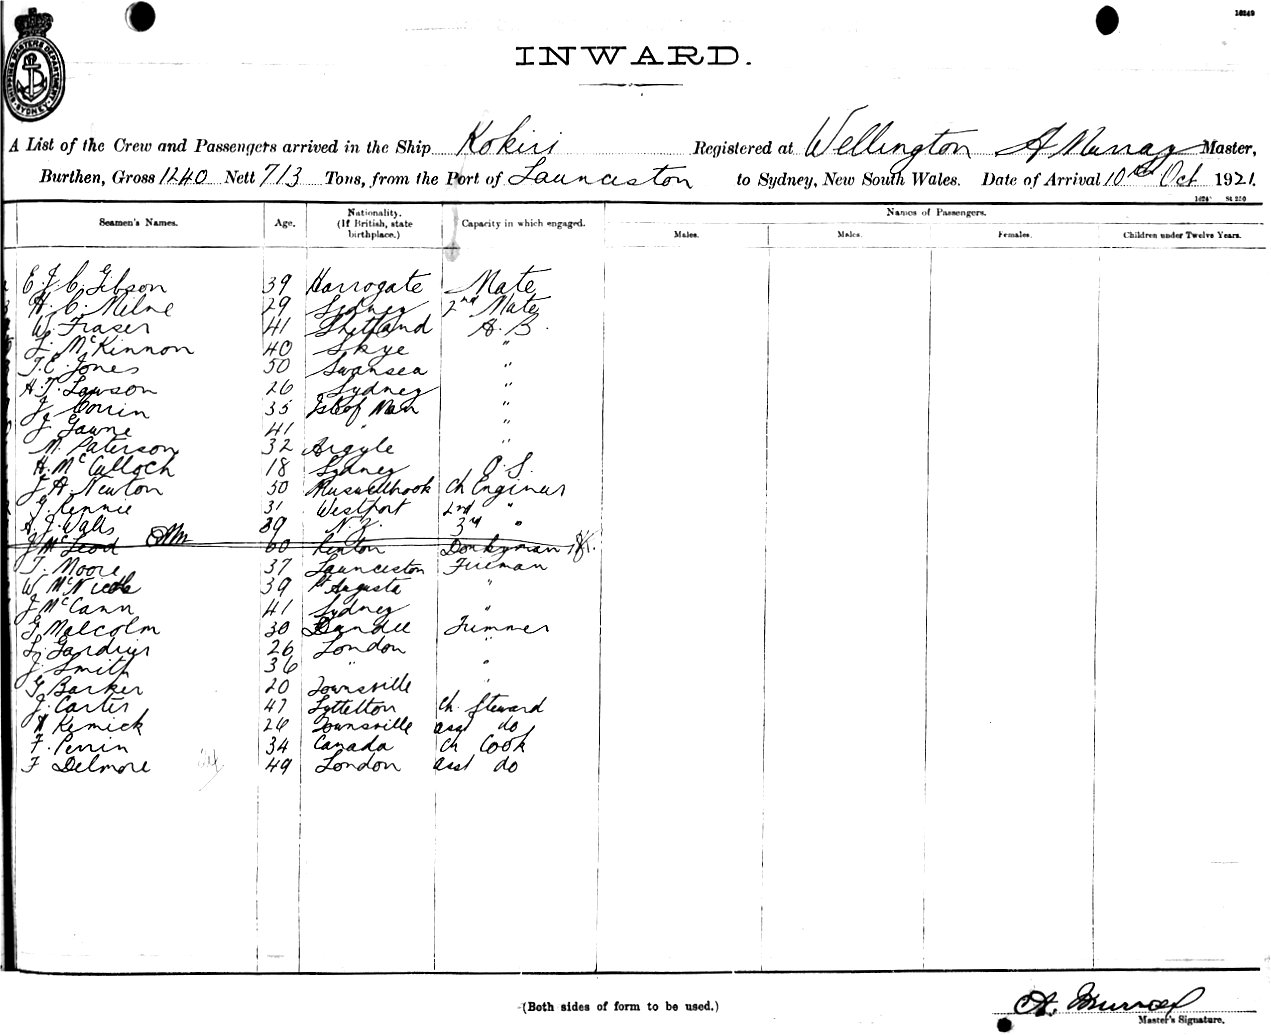 16249
SHIPPING MASTERS DEPARTMENT SYDNEY
INWARD.
A List of the Crew and Passengers arrived in the Ship Kokiri Registered at Wellington A Murray Master,
Burthen, Gross 1240 Nett 713 Tons, from the Port of Launceston to Sydney, New South Wales. Date of Arrival 10th Oct 1921.
Seamen's Names. Age. Nationality. (If British, state birthplace.) Capacity in which engaged. Names of Passengers.
Males. Males. Females. Children under Twelve Years.
E J C Gibson 39 Harrogate Mate
H. C. Milne 29 Sydney 2nd Mate
W. Fraser 41 Shetland A. B.
L. McKinnon 40 Skye "
T. E. Jones 50 Swansea "
H. T. Lawson 26 Sydney "
J. Corrin 35 Isle of Man "
J. Gawne 41 " "
M. Paterson 32 Argyle "
H. McCulloch 18 Sydney O. S.
J H Newton 50 Ch Engineer
G. Rennie 31 Westport 2nd "
A. J. Walls 39 N. Z. 3rd "
J McLeod 60 Renton Donkeyman
T. Moore 37 Launceston Fireman
W McNicol 39 Pt Augusta "
J McCann 41 Sydney "
G Malcolm 30 Dundee Trimmer
L. Gardner 26 London "
J. Smith 36 " "
G Barker 20 Townsville "
J. Carter 47 Lyttelton Ch. Steward
Kemick 26 Townsville asst do
F. Perrin 34 Canada Ch Cook
F Delmore 49 London asst do
(Both sides of form to be used.)
A. Murray
Master's Signature.